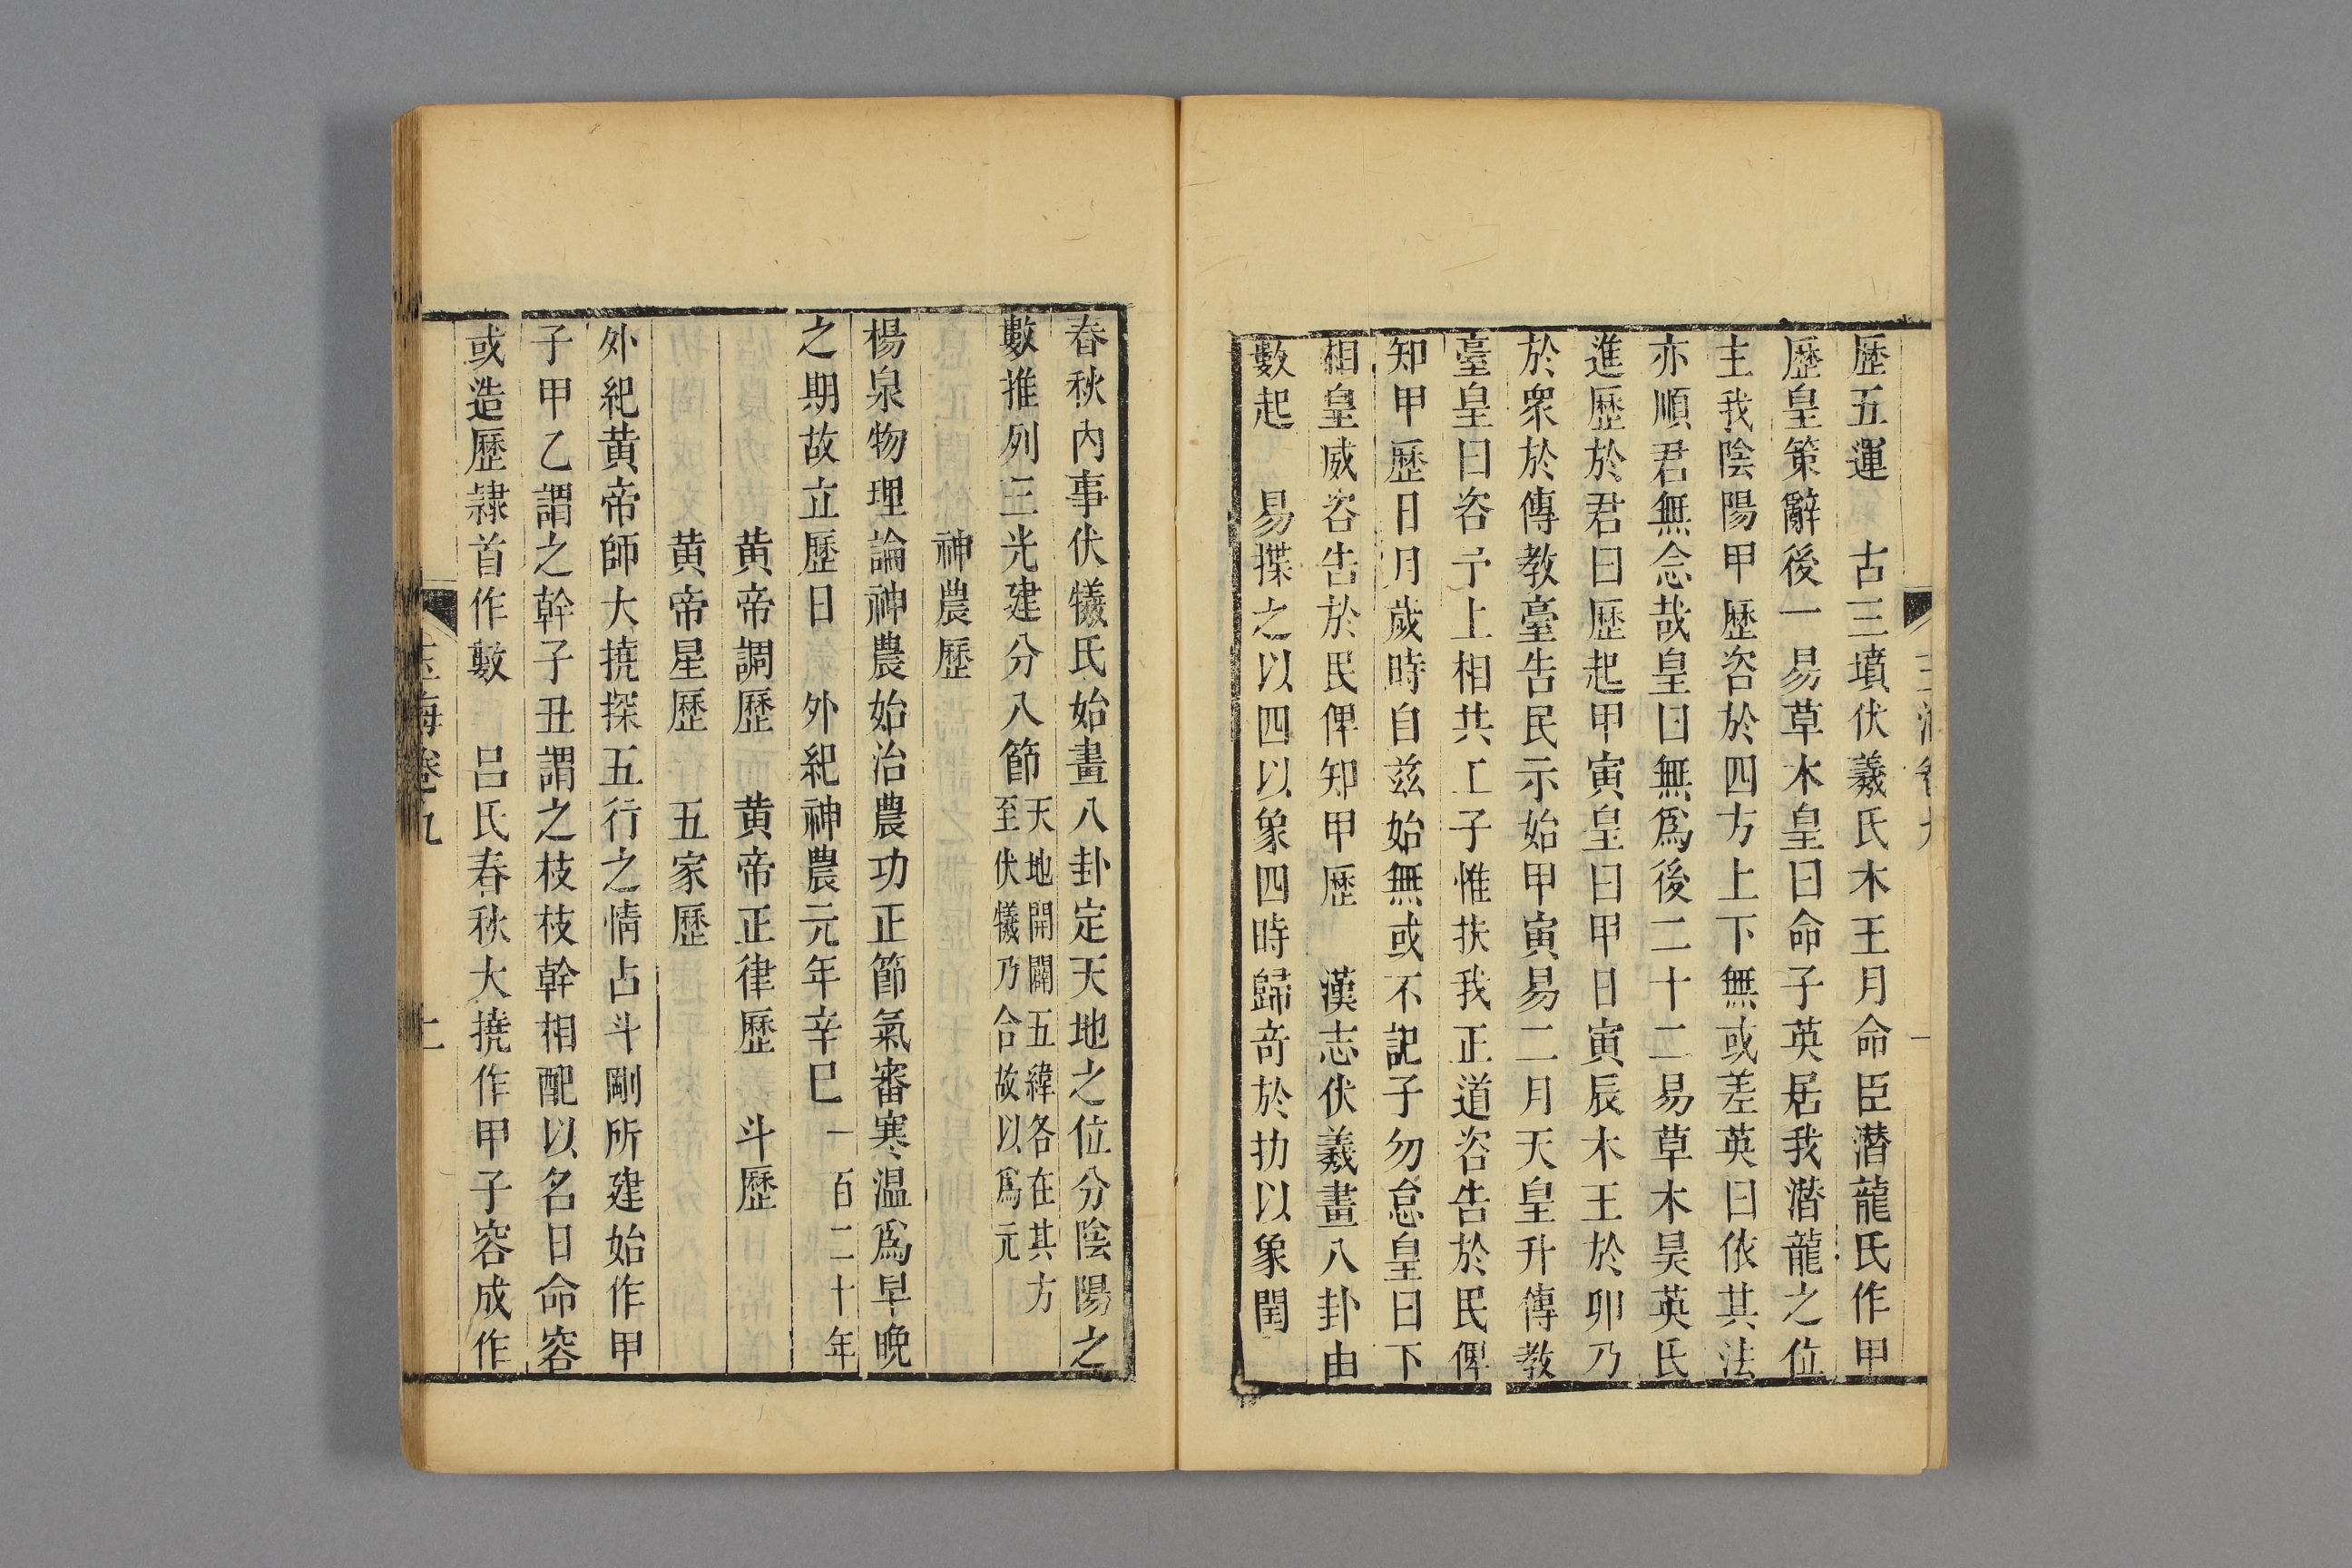 歷五運　古三墳伏羲氏木王月命臣潛龍氏作甲
歷皇策辭後一易草木皇曰命子英居我潛龍之位
主我陰陽甲歷咨於四方上下無或差英曰依其法
亦順君無念哉皇曰無爲後二十二易草木昊英氏
進歷於君曰歷起甲寅皇曰甲日寅辰木王於卯乃
於衆於傳教臺告民示始甲寅易二月天皇升傳教
臺皇曰咨予上相共工子惟扶我正道咨告於民俾
知甲歷日月歲時自兹始無或不記子勿怠皇曰下
相皇威咨告於民俾知甲歷　漢志伏羲畫八卦由
數起　易揲之以四以象四時歸奇於扐以象閏
春秋內事伏犧氏始畫八卦定天地之位分陰陽之
數推列三光建分八節天地開闢五緯各在其方
至伏犧乃合故以爲元
神農歷
楊泉物理論神農始治農功正節氣審寒温爲早晚
之期故立歷日　外紀神農元年辛巳一百二十年
黄帝調歷　黄帝正律歷　斗歷
黄帝星歷　五家歷
外紀黄帝師大撓探五行之情占斗剛所建始作甲
子甲乙謂之幹子丑謂之枝枝幹相配以名日命容
或造歷隷首作數　吕氏春秋大撓作甲子容成作
玉海卷九